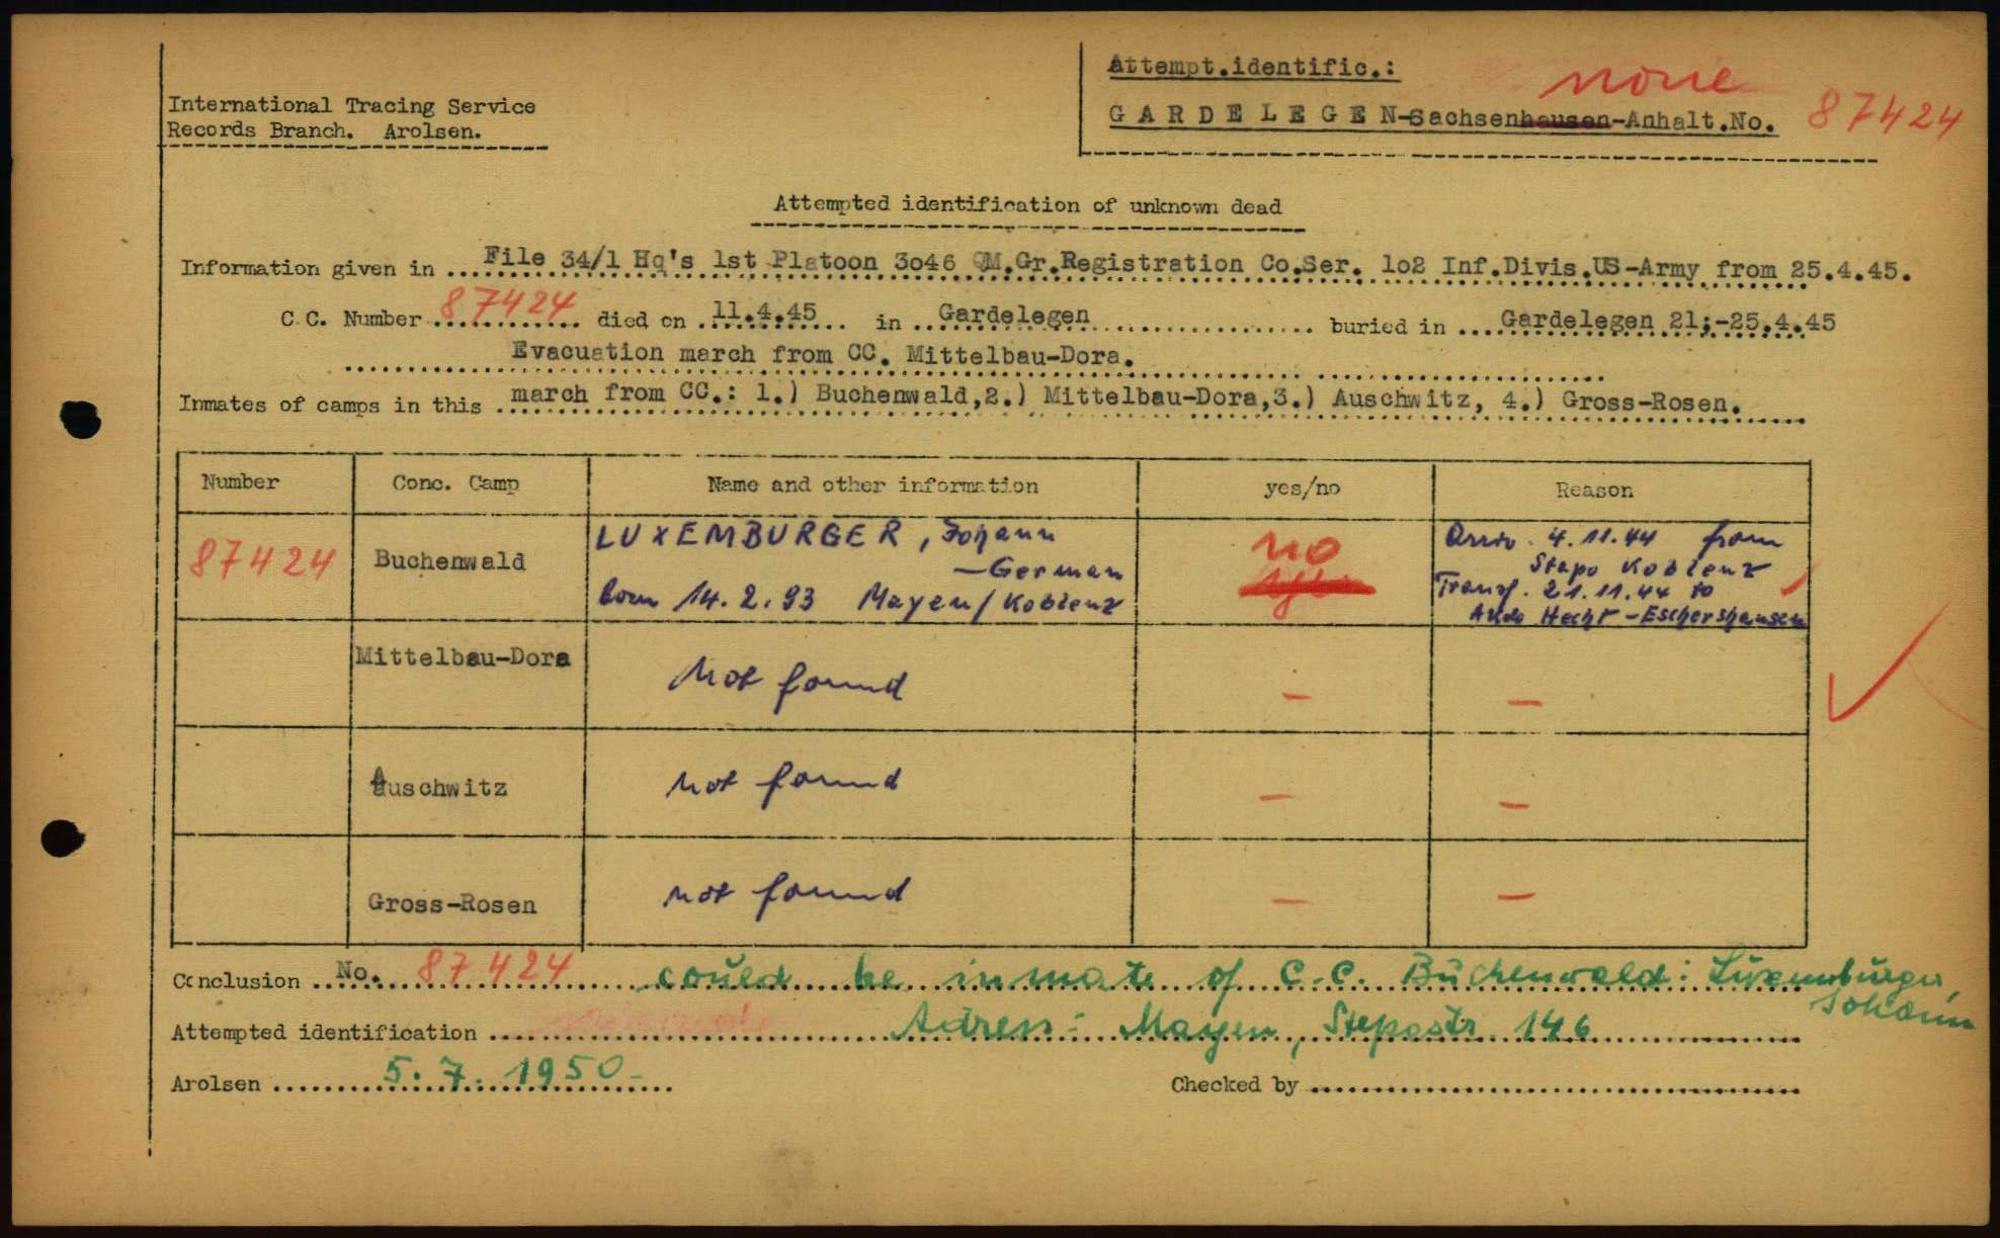 Attempt.identific.:
none
International Tracing Service
Records Branch. Arolsen.
GARDELEGEN-Sachsenhausen-Anhalt.No. 87424
Attempted identification of unknown dead
Information given in File 34/1 Hq's 1st Platoon 3o46 QM.Gr.Registration Co.Ser. 1o2 Inf.Divis.US-Army from 25.4.45.
C.C. Number 87424 died on 11.4.45 in Gardelegen buried in Gardelegen 21;-25.4.45
Evacuation march from CC. Mittelbau-Dora.
Inmates of camps in this march from CC.: 1.) Buchenwald,2.) Mittelbau-Dora,3.) Auschwitz, 4.) Gross-Rosen.
Number Conc. Camp Name and other information yes/no Reason
87424 Buchenwald LUXEMBURGER, Johann
—German
born 14.2.93 Mayen/Koblenz
no
Arriv. 4.11.44 from
Stapo Koblenz
Transf. 21.11.44 to
Akdo Hecht-Eschershausen
Mittelbau-Dora Not found — —
Auschwitz not found — —
Gross-Rosen not found — —
Conclusion No. 87424 could be inmate of C.C. Buchenwald: Luxemburger,
Johann
Attempted identification Adress: Mayen, 146
Arolsen 5.7.1950
Checked by